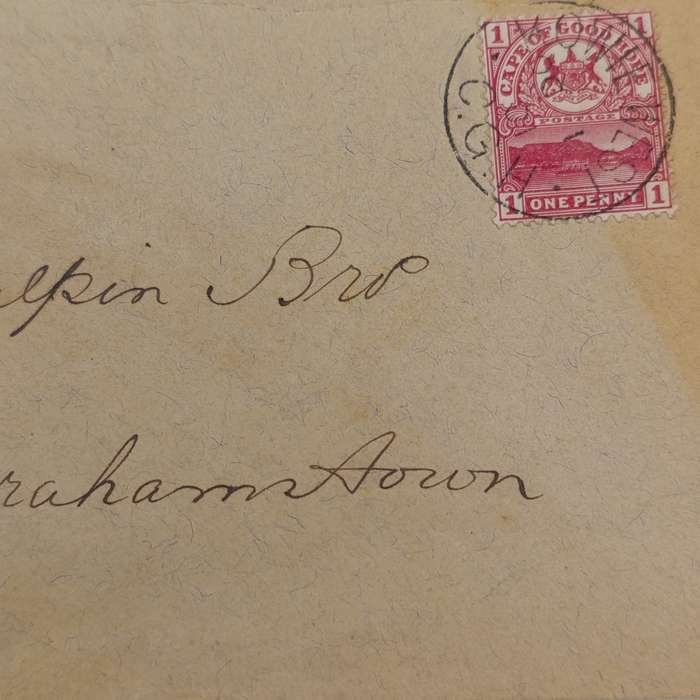 1 1
CAPE OF GOOD HOPE
POSTAGE
1 ONE PENNY 1
C.G.H.
lpin Bro
rahamstown